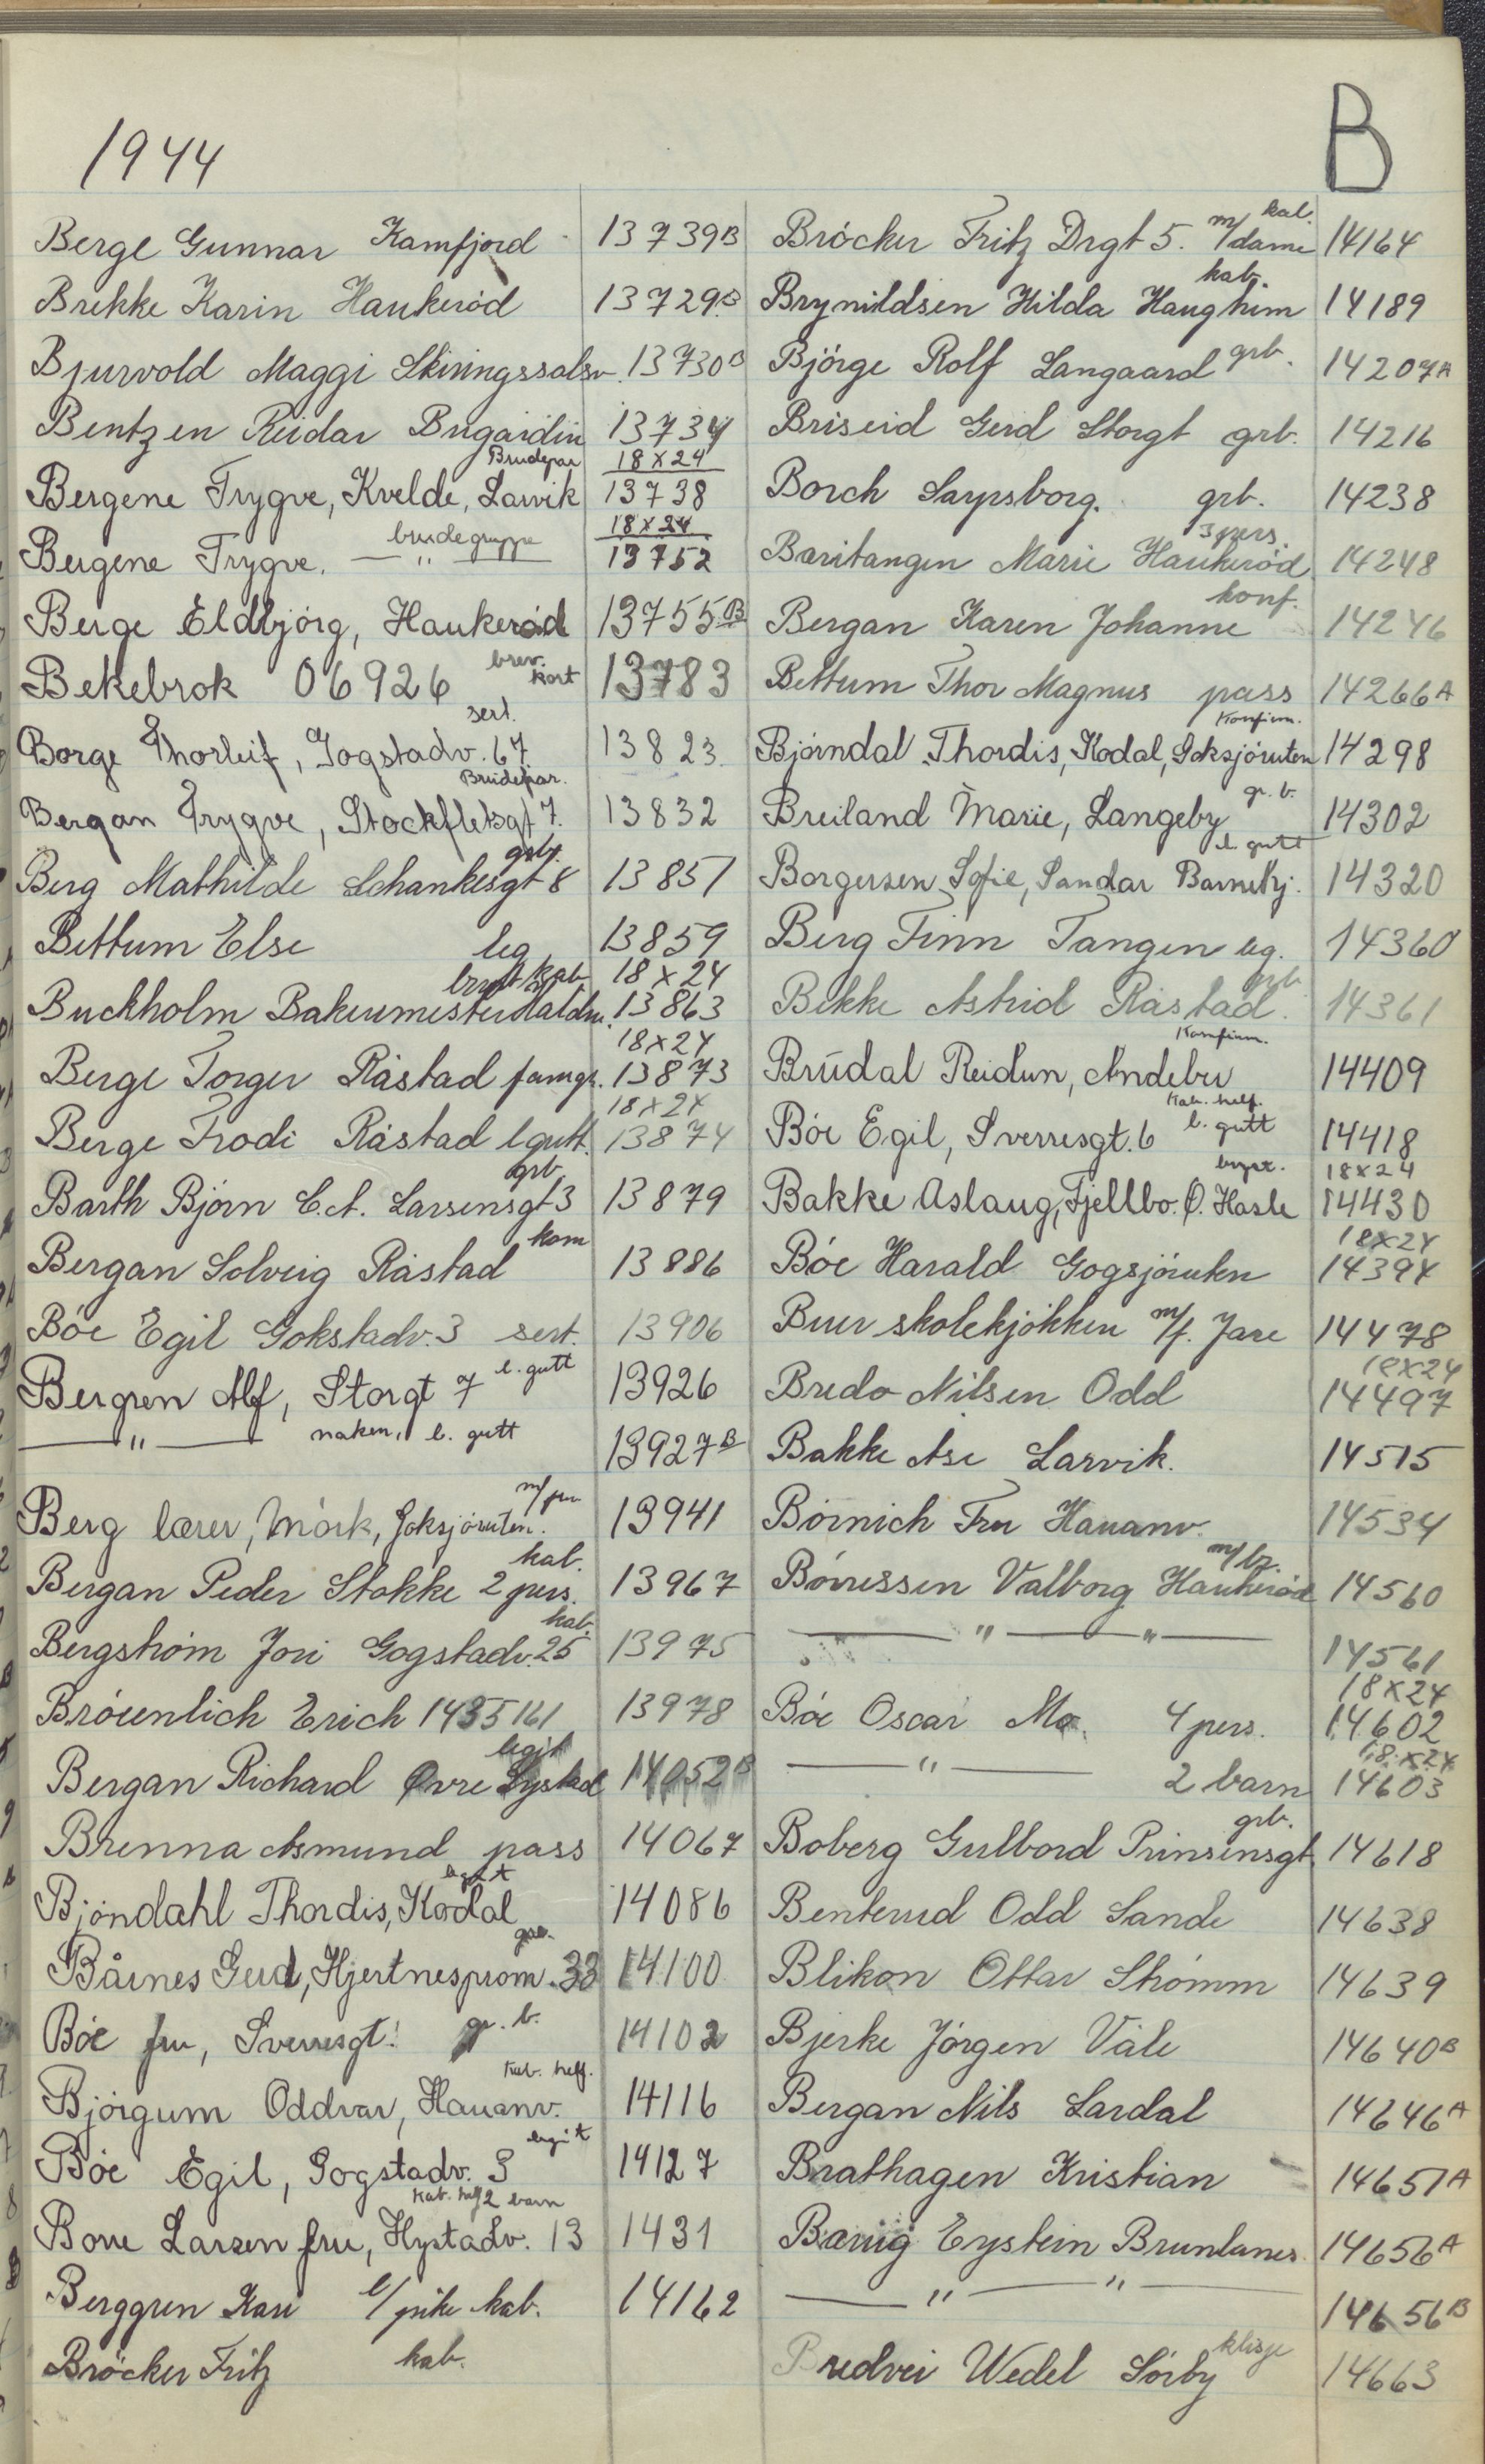 1944
B
Berge Gunnar Kamfjord 13739B
Brekke Karin Haukerød 13729B
Bjurvold Maggi Skiringssalsv. 13730B
Bentzen Reidar Bugardin 13734
Brudepar 18x24
Bergene Trygve, Kvelde, Larvik 13738
brudegruppe 18x24
Bergene Trygve. — " — 13752
Berge Eldbjörg, Haukerød 13755B
Bekebrok 06926 brev. kort 13783
sert.
Borge Thorleif, Gogstadv. 67. 13823
Brudepar.
Bergan Trygve, Stockfletsgt 7. 13832
grb.
Berg Mathilde Schankesgt 8 13851
Bettum Else leg 13859
brudt kab 18x24
Buckholm Bakermester 13863
18x24
Berge Torger Råstad famgr. 13873
18x24
Berge Frodi Råstad l gutt. 13874
grb.
Barth Björn C.A. Larsensgt 3 13879
kom
Bergan Solveig Råstad 13886
Bóe Egil Gokstadv. 3 sert. 13906
Bergren Alf, Storgt 7 l. gutt 13926
— " — naken, l. gutt 13927B
m/fru
Berg lærer, Mörk, Goksjöruten. 13941
kab.
Bergan Peder Stokke 2 pers. 13967
kab.
Bergström Jori Gogstadv. 25 13975
Bróunlich Erich 1435161 13978
legit
Bergan Richard Øvre Lystad 14052B
Brenna Asmund pass 14067
legit
Bjöndahl Thordis, Kodal 14086
Bårnes Gerd, Hjertnesprom. 33 14100
Bóe fru, Sverresgt. gr. b. 14102
Kab. helf.
Bjórgum Oddvar, Hauanv. 14116
legit
Bóe Egil, Gogstadv. 3 14127
Kab. helf 2 barn
Borre Larsen fru, Hystadv. 13 1431
Berggren Kari l/pike kab. 14162
Bröcker Fritz kab.
kab.
Bröcker Fritz Drgt 5. m/dame 14164
kab.
Brynildsen Hilda Haugheim 14189
Bjórge Rolf Langaard grb. 14207A
Briseid Gerd Storgt grb. 14216
Borch Sarpsborg. grb. 14238
3 pers.
Baritangen Marie Haukerød 14248
konf.
Bergan Karen Johanne 14246
Bettum Thor Magnus pass 14266A
Konfirm.
Bjórndal Thordis, Kodal, Goksjóruten 14298
Breiland Marie, Langeby gr. b. 14302
l. gutt
Borgersen Sofie, Sandar Barnehj. 14320
Berg Finn Tangen leg. 14360
grb
Bekke Astrid Råstad. 14361
Konfirm.
Brúdal Reidun, Andebu 14409
Kab. helf.
Bóe Egil, Sverresgt. 6 l. gutt 14418
bryst. 18x24
Bakke Aslaug, Fjellbo. Ø. Hasle 14430
18x24
Bóe Harald Gogsjóruten 14394
Buer skolekjökken m/f. Jare 14478
18x24
Bredo Nilsen Odd 14497
Bakke Åse Larvik. 14515
Börnich Fru Hauanv. 14534
Bórressen Valborg Haukerød 14560
— " — " — 14561
18x24
Bóe Oscar Mo. 4 pers. 14602
18x24
— " — 2 barn 14603
grb.
Boberg Gulbord Prinsensgt 14618
Benterud Odd Sande 14638
Blikon Ottar Strömm 14639
Bjerke Jórgen Våle 14640B
Bergan Nils Lardal 14646A
Brathagen Kristian 14651A
Bærug Eystein Brunlanes. 14656A
— " — " — 14656B
klisje
Bredvei Wedel Sórby 14663